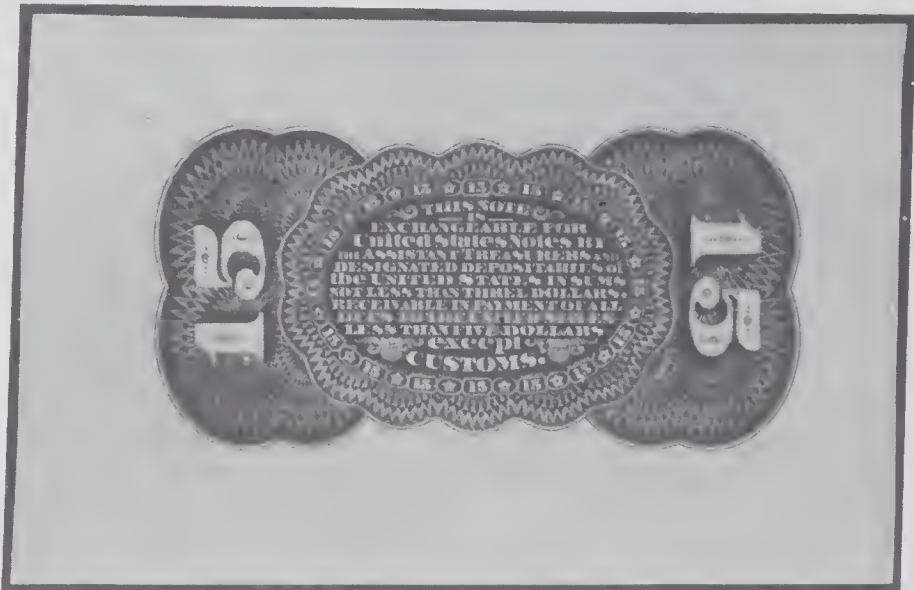 15 ☆ 15 ☆ 15
THIS NOTE
IS
EXCHANGEABLE FOR
United States Notes BY
THE ASSISTANT TREASURERS AND
DESIGNATED DEPOSITARIES of
the UNITED STATES IN SUMS
NOT LESS THAN THREE DOLLARS.
RECEIVABLE IN PAYMENT OF ALL
LESS THAN FIVE DOLLARS
except
CUSTOMS.
15 ☆ 15 ☆ 15 ☆ 15
15
15